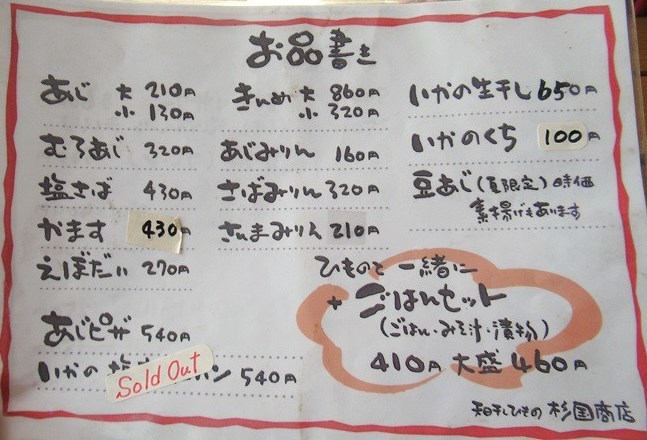 お品書き
あじ 大 210円
小 130円
むろあじ 320円
塩さば 430円
かます 430円
えぼだい 270円
あじピザ 540円
いかの Sold Out パン 540円
きんめ 大 860円
小 320円
あじみりん 160円
さばみりん 320円
さんまみりん 210円
いかの生干し 650円
いかのくち 100円
豆あじ(夏限定)時価
素揚げもあります
ひものと一緒に
+ ごはんセット
(ごはん・みそ汁・漬物)
410円 大盛 460円
天日干しひもの 杉国商店